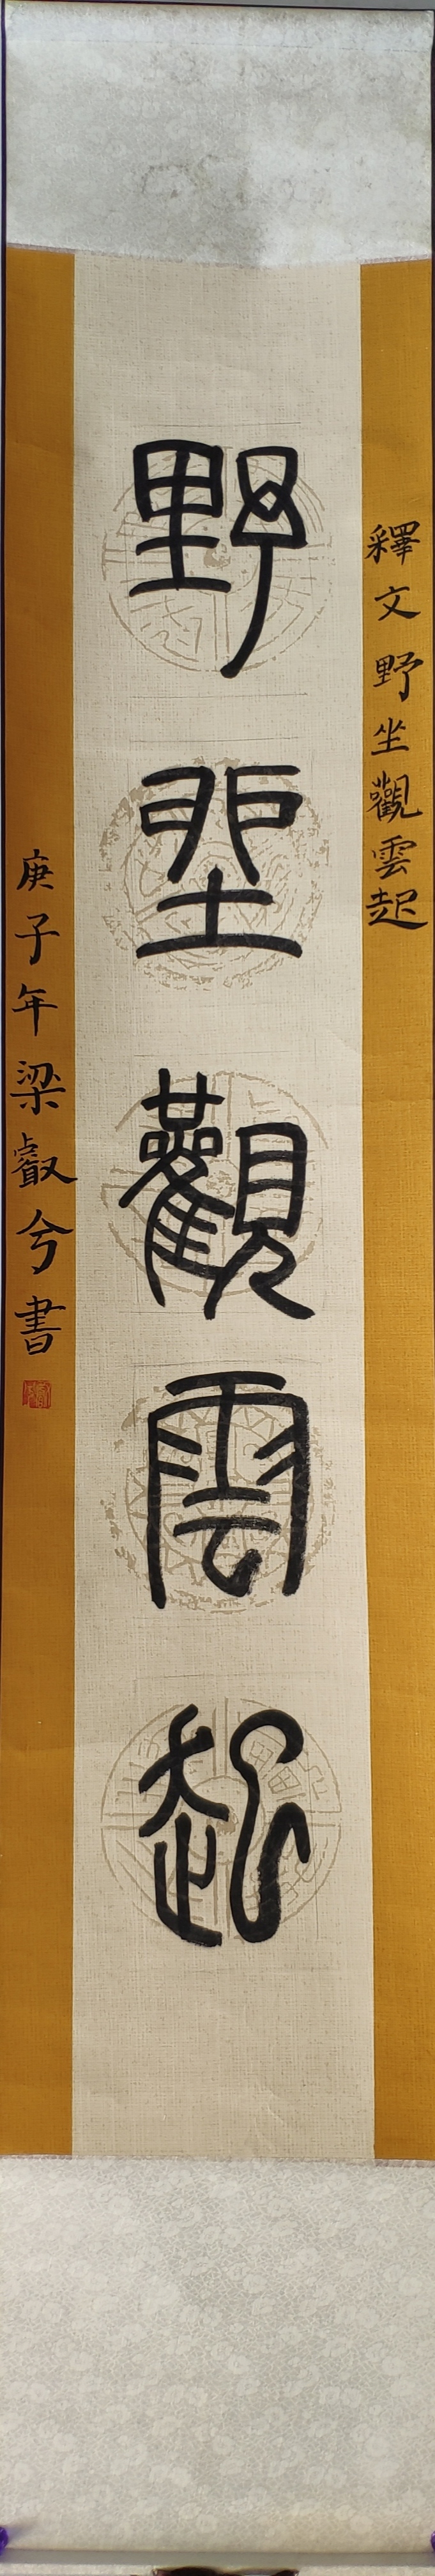 釋文野坐觀雲起
野坐觀雲起
庚子年梁叡兮書